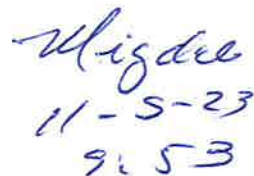 Migdee
11-5-23
9:53